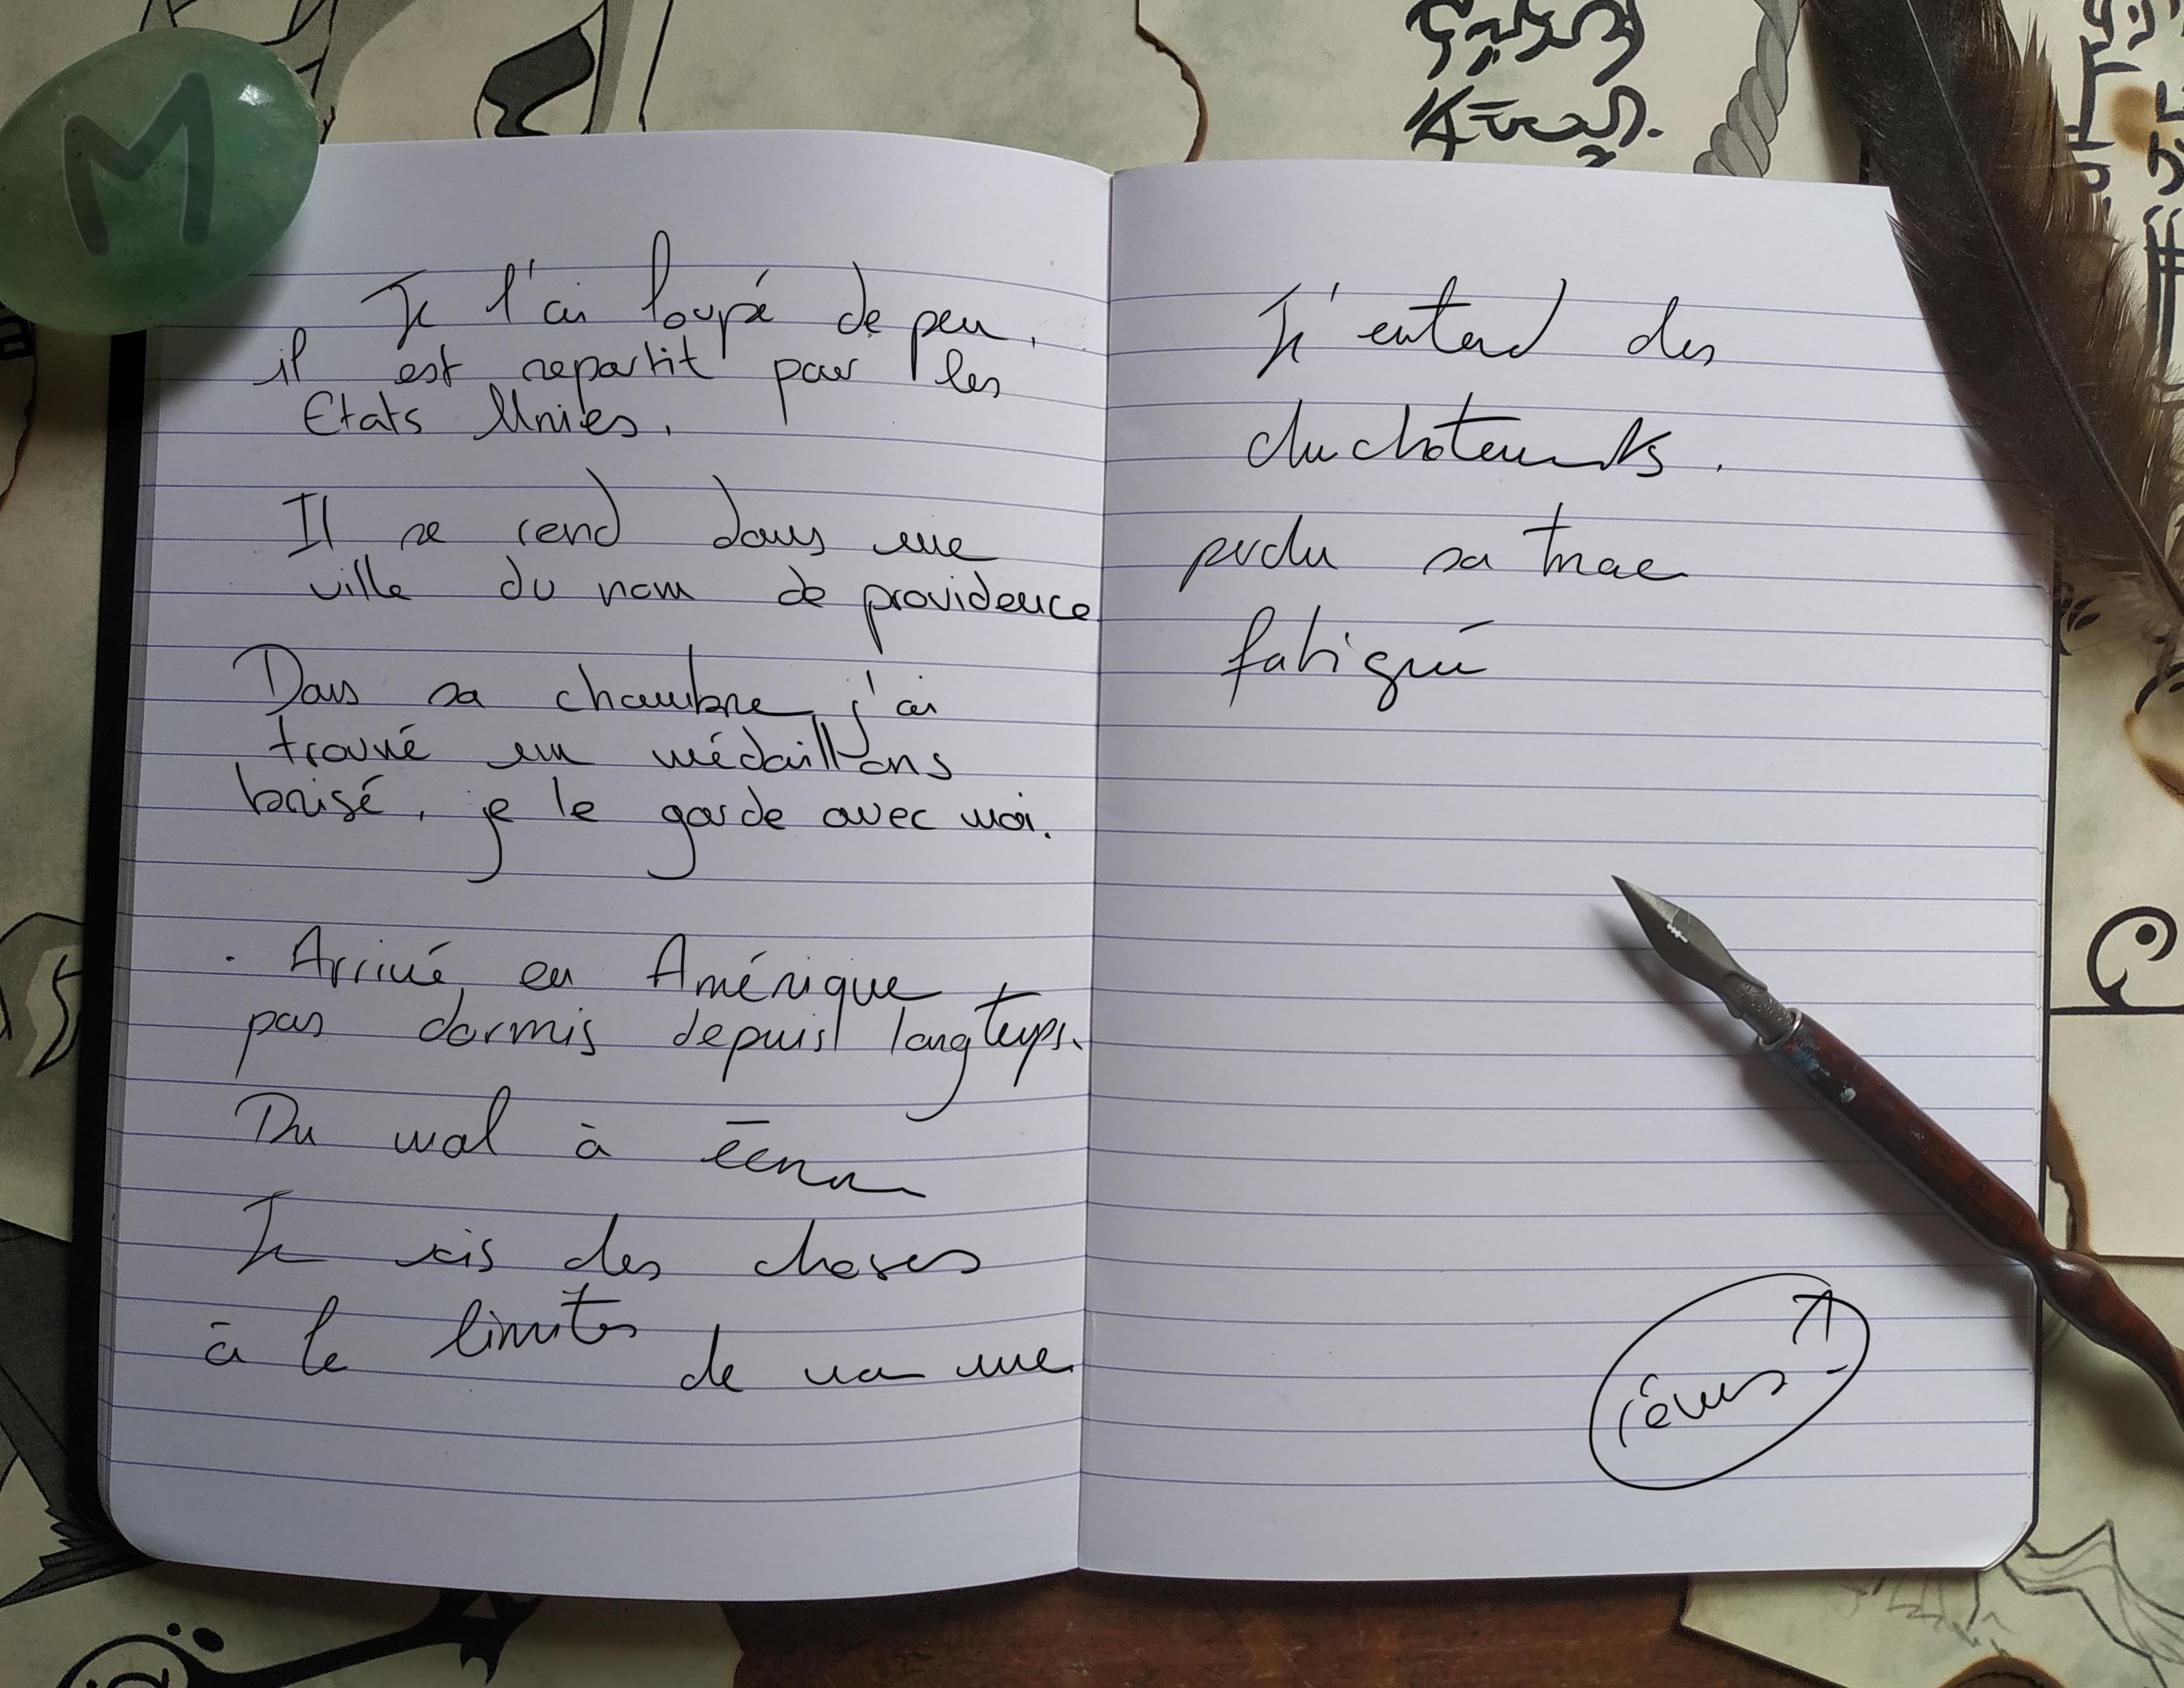 Je l'ai loupé de peu,
il est repartit pour les
Etats Unies.
Il se rend dans une
ville du nom de providence.
Dans sa chambre, j'ai
trouvé un médaillons
brisé, je le garde avec moi.
. Arrivé, en Amérique
pas dormis depuis longtemps.
Du mal à
Je vois des choses
à la limites de ma vue.
J'entend des
chuchotements.
perdu sa trace
fatigué
rêves
M